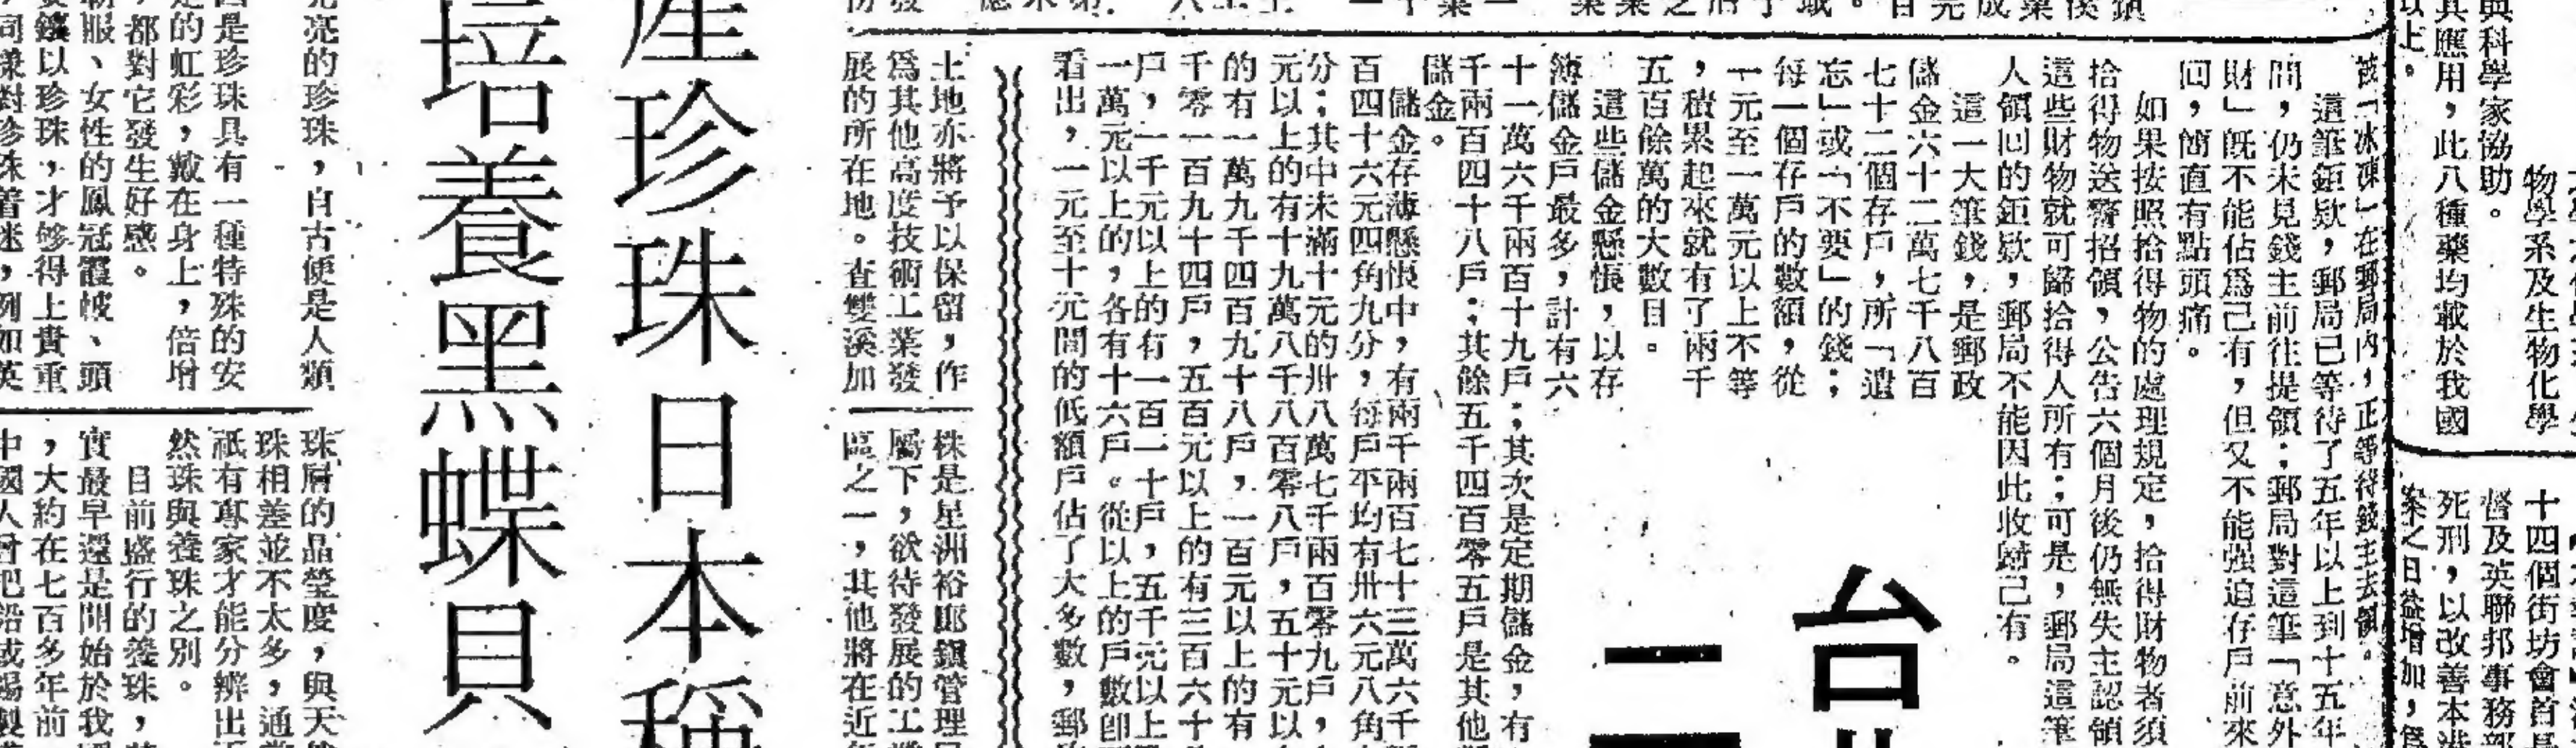 與科學家協助。
其應用，此八種藥均載於我國
以上。
物學系及生物化學
十四個街坊會首長
督及英聯邦事務部
死刑，以改善本港
案之日益增加，爲
該「冰凍」在郵局內，正等待錢主去領。
這筆鉅欵，郵局已等待了五年以上到十五年
間，仍未見錢主前往提領；郵局對這筆「意外
財」旣不能佔爲己有，但又不能强迫存戶前來
回，簡直有點頭痛。
如果按照拾得物的處理規定，拾得財物者須
拾得物送警招領，公告六個月後仍無失主認領
這些財物就可歸拾得人所有；可是，郵局這筆
人領回的鉅欵，郵局不能因此收歸己有。
這一大筆錢，是郵政
儲金六十二萬七千八百
七十二個存戶，所「遺
忘」或「不要」的錢；
每一個存戶的數額，從
一元至一萬元以上不等
，積累起來就有了兩千
五百餘萬的大數目。
這些儲金懸悵，以存
簿儲金戶最多，計有六
十一萬六千兩百十九戶；其次是定期儲金，有
千兩百四十八戶；其餘五千四百零五戶是其他
儲金。
儲金存薄懸悵中，有兩千兩百七十三萬六千
百四十六元四角九分，每戶平均有卅六元八角
分；其中未滿十元的卅八萬七千兩百零九戶，
元以上的有十九萬八千八百零八戶，五十元以
的有一萬九千四百九十八戶，一百元以上的有
千零一百九十四戶，五百元以上的有三百六十
戶，一千元以上的有一百一十戶，五千元以上
一萬元以上的，各有十六戶。從以上的戶數卽
看出，一元至十元間的低額戶佔了大多數，郵
台
土地亦將予以保留，作
爲其他高度技術工業發
展的所在地。查雙溪加
株是星洲裕廊鎭管理
屬下，欲待發展的工
區之一，其他將在近
產珍珠日本稱
培養黑蝶貝
亮的珍珠，自古便是人類
是珍珠具有一種特殊的安
的虹彩，戴在身上，倍增
，都對它發生好感。
朝服、女性的鳳冠霞帔、頭
鑲以珍珠，才够得上貴重
同樣對珍珠着迷，例如英
珠層的晶瑩度，與天
珠相差並不太多，通
祇有專家才能分辨出
然珠與養珠之別。
目前盛行的養珠，
實最早還是開始於我國
，大約在七百多年前
中國人曾把鉛或錫製